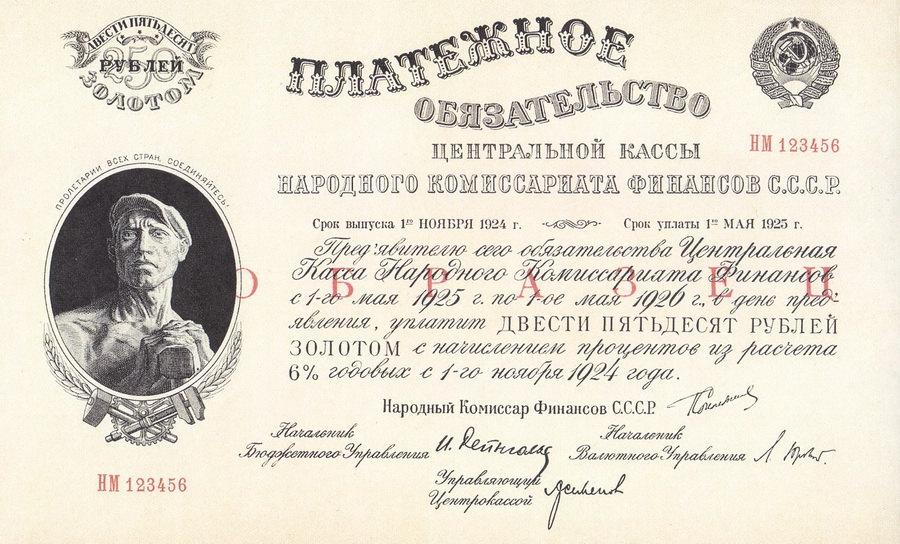 ДВЕСТИ ПЯТЬДЕСЯТ
250
РУБЛЕЙ
ЗОЛОТОМ
ПЛАТЕЖНОЕ
ОБЯЗАТЕЛЬСТВО
ЦЕНТРАЛЬНОЙ КАССЫ
НМ 123456
НАРОДНОГО КОМИССАРИАТА ФИНАНСОВ С.С.С.Р.
ПРОЛЕТАРИИ ВСЕХ СТРАН, СОЕДИНЯЙТЕСЬ!
Срок выпуска 1го НОЯБРЯ 1924 г. Срок уплаты 1го МАЯ 1925 г.
Пред'явителю сего обязательства Центральная
Касса Народного Комиссариата Финансов
ОБРАЗЕЦ
с 1-го мая 1925 г. по 1-ое мая 1926 г., в день пред'-
явления, уплатит ДВЕСТИ ПЯТЬДЕСЯТ РУБЛЕЙ
ЗОЛОТОМ с начислением процентов из расчета
6% годовых с 1-го ноября 1924 года.
Народный Комиссар Финансов С.С.С.Р.
Начальник
Бюджетного Управления
Начальник
Валютного Управления
Управляющий
Центрокассой
НМ 123456